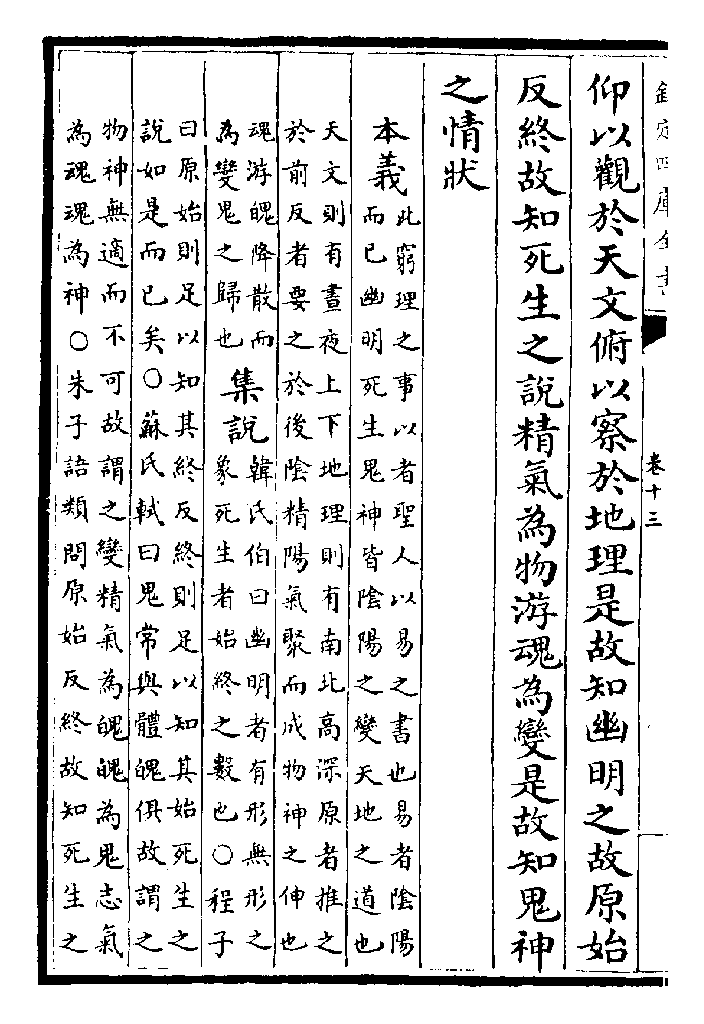 欽定四庫全書
卷十三
仰以觀於天文俯以察於地理是故知幽明之故原始
反終故知死生之說精氣為物游魂為變是故知鬼神
之情狀
本義
此窮理之事以者聖人以易之書也易者陰陽
而已幽明死生鬼神皆陰陽之變天地之道也
天文則有晝夜上下地理則有南北高深原者推之
於前反者要之於後陰精陽氣聚而成物神之伸也
魂游魄降散而
為變鬼之歸也
集說
韓氏伯曰幽明者有形無形之
象死生者始終之數也○程子
曰原始則足以知其終反終則足以知其始死生之
說如是而已矣○蘇氏軾曰鬼常與體魄俱故謂之
物神無適而不可故謂之變精氣為魄魄為鬼志氣
為魂魂為神○朱子語類問原始反終故知死生之